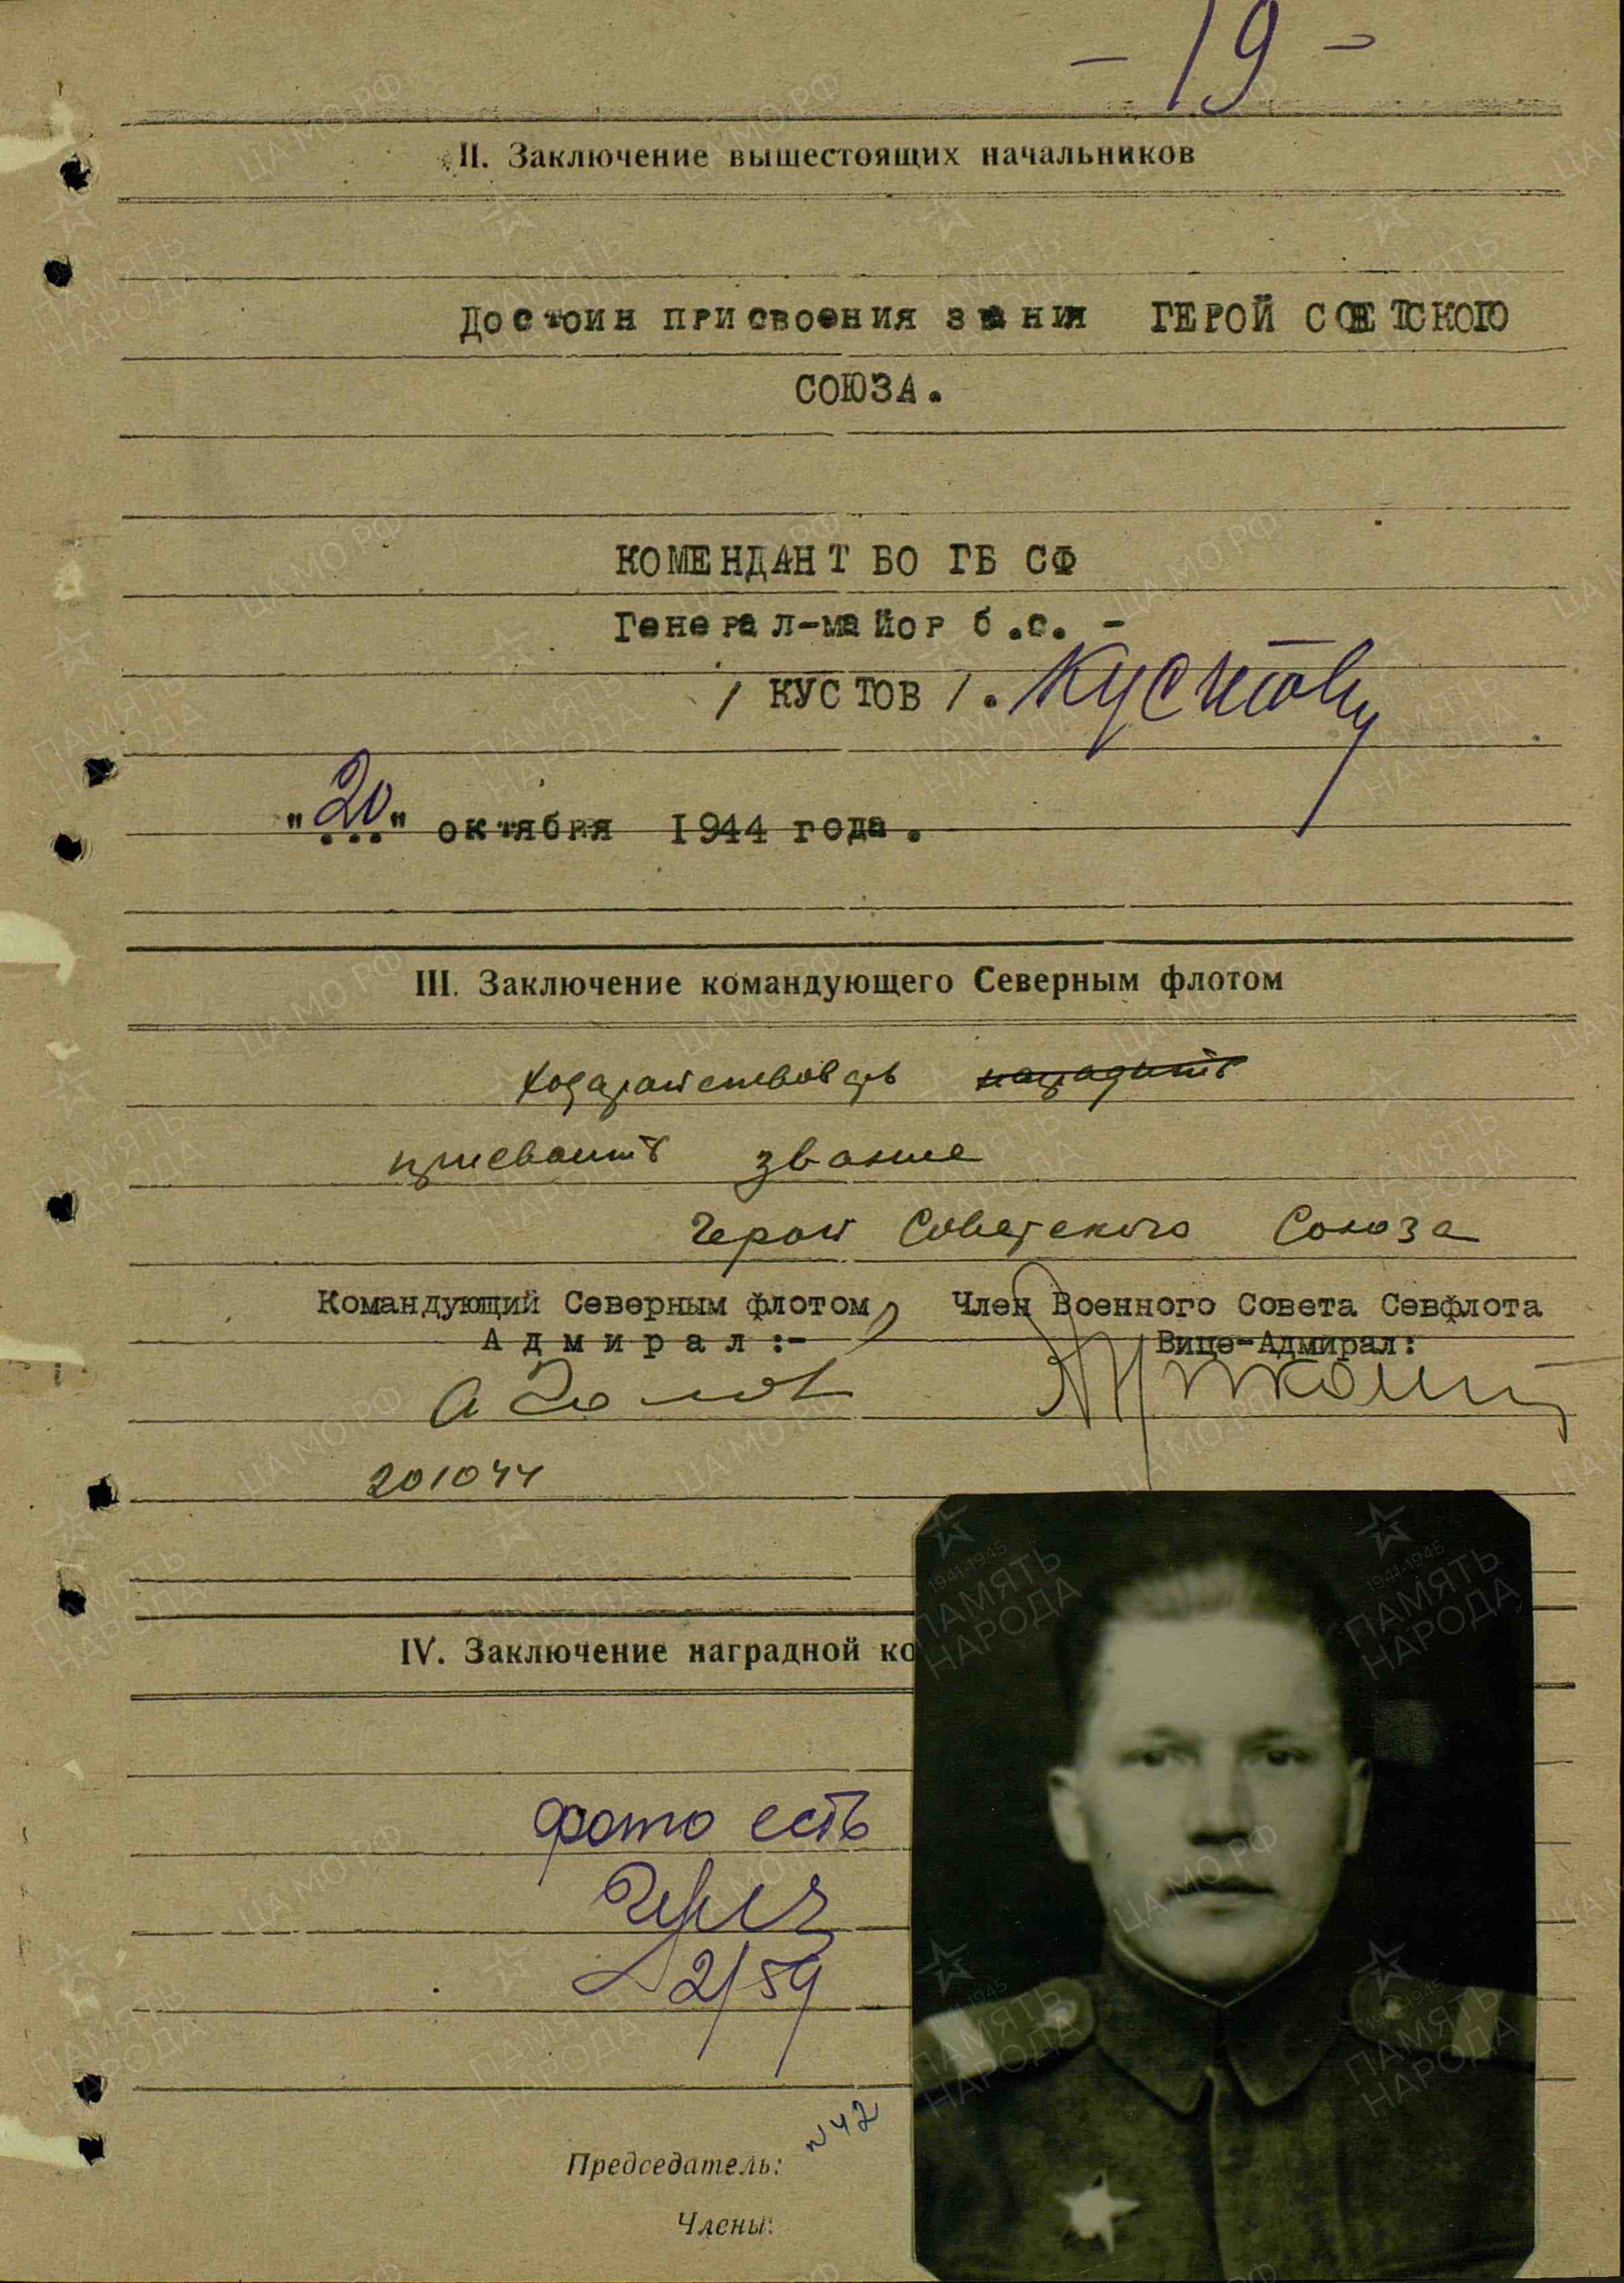 - 19 -
II. Заключение вышестоящих начальников
Достоин присвоения звания ГЕРОЙ СОВЕТСКОГО
СОЮЗА.
КОМЕНДАНТ БО ГБ СФ
Генерал-майор б.с. -
/ КУСТОВ /. Кустов
"20" октября 1944 года.
III. Заключение командующего Северным флотом
Ходатайствовать наградить
присвоить звание
Герой Советского Союза
Командующий Северным флотом
Адмирал:-
Член Военного Совета Севфлота
Вице-Адмирал:
А Голов
201044
IV. Заключение наградной ко
фото есть
2/59
N42
Председатель:
Члены:
ЦА МО РФ
1941-1945
ПАМЯТЬ
НАРОДА